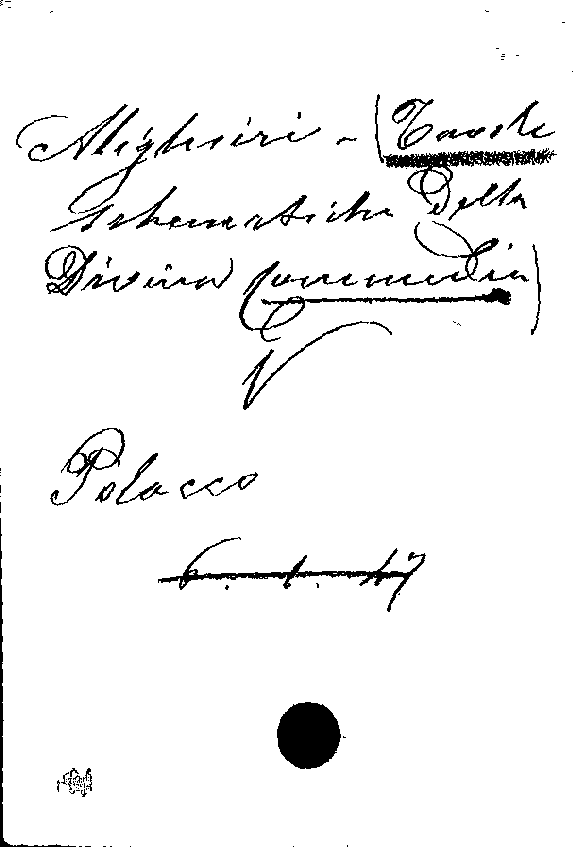 Alighieri - (Tavole
schematiche Della
Divina Commedia)
V
Polacco
6. 1. 47